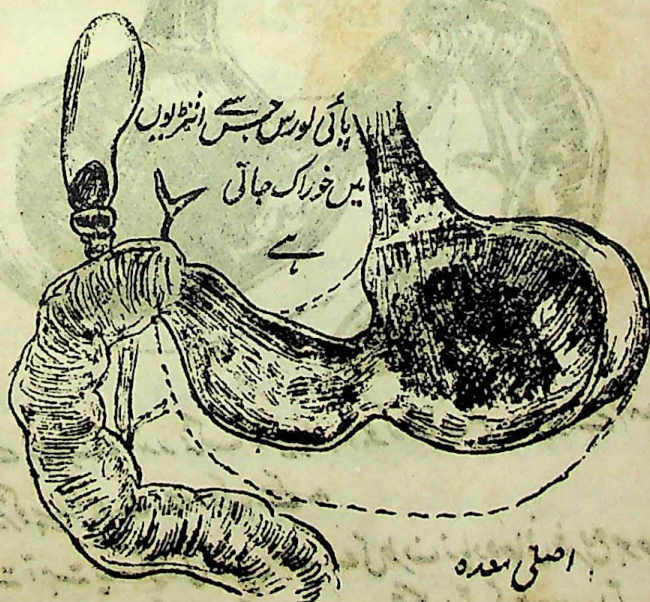 پائی لورس جس سے انتڑیوں
میں خوراک جاتی
ہے
اصلی معدہ